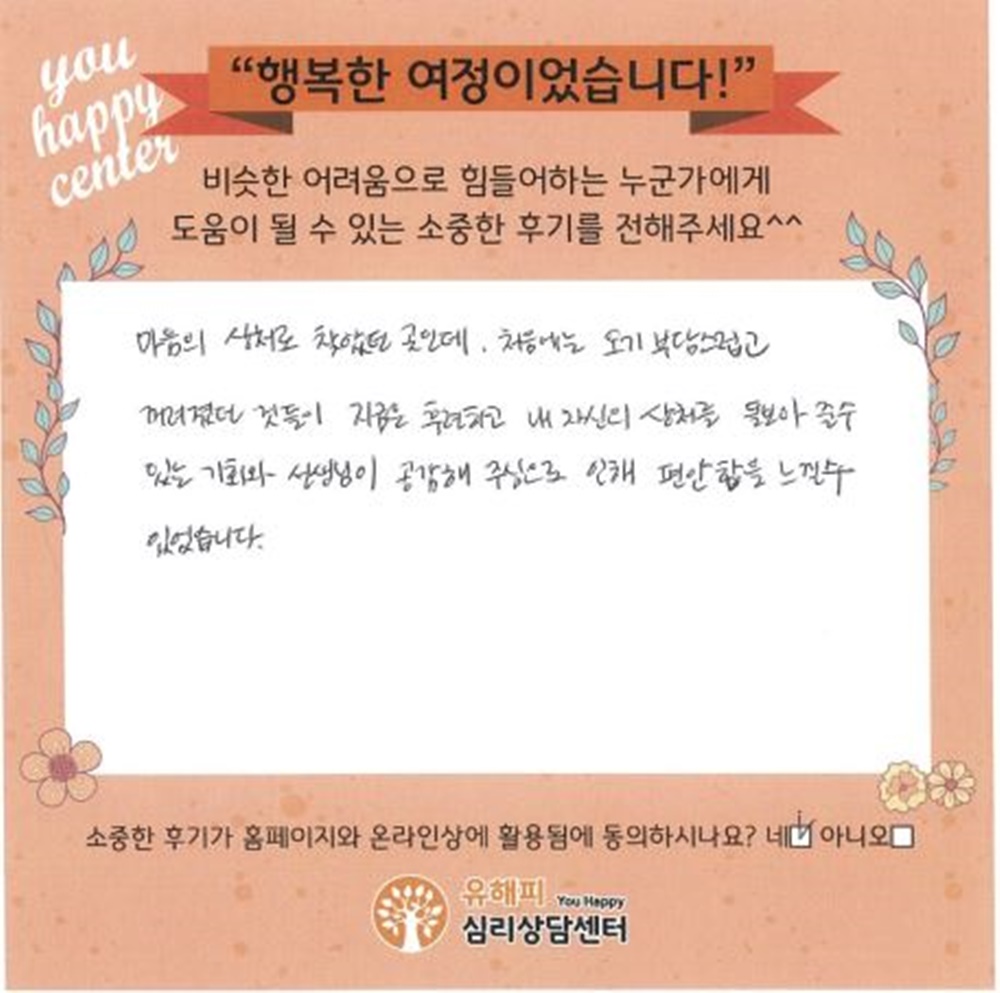 you
happy
center
“행복한 여정이었습니다!”
비슷한 어려움으로 힘들어하는 누군가에게
도움이 될 수 있는 소중한 후기를 전해주세요^^
마음의 상처로 찾았던 곳인데. 처음에는 오기 부담스럽고
꺼려졌던 것들이 지금은 후련하고 내 자신의 상처를 돌보아 줄수
있는 기회와 선생님이 공감해 주심으로 인해 편안함을 느낄수
있었습니다.
소중한 후기가 홈페이지와 온라인상에 활용됨에 동의하시나요? 네 아니오
유해피 You Happy
심리상담센터